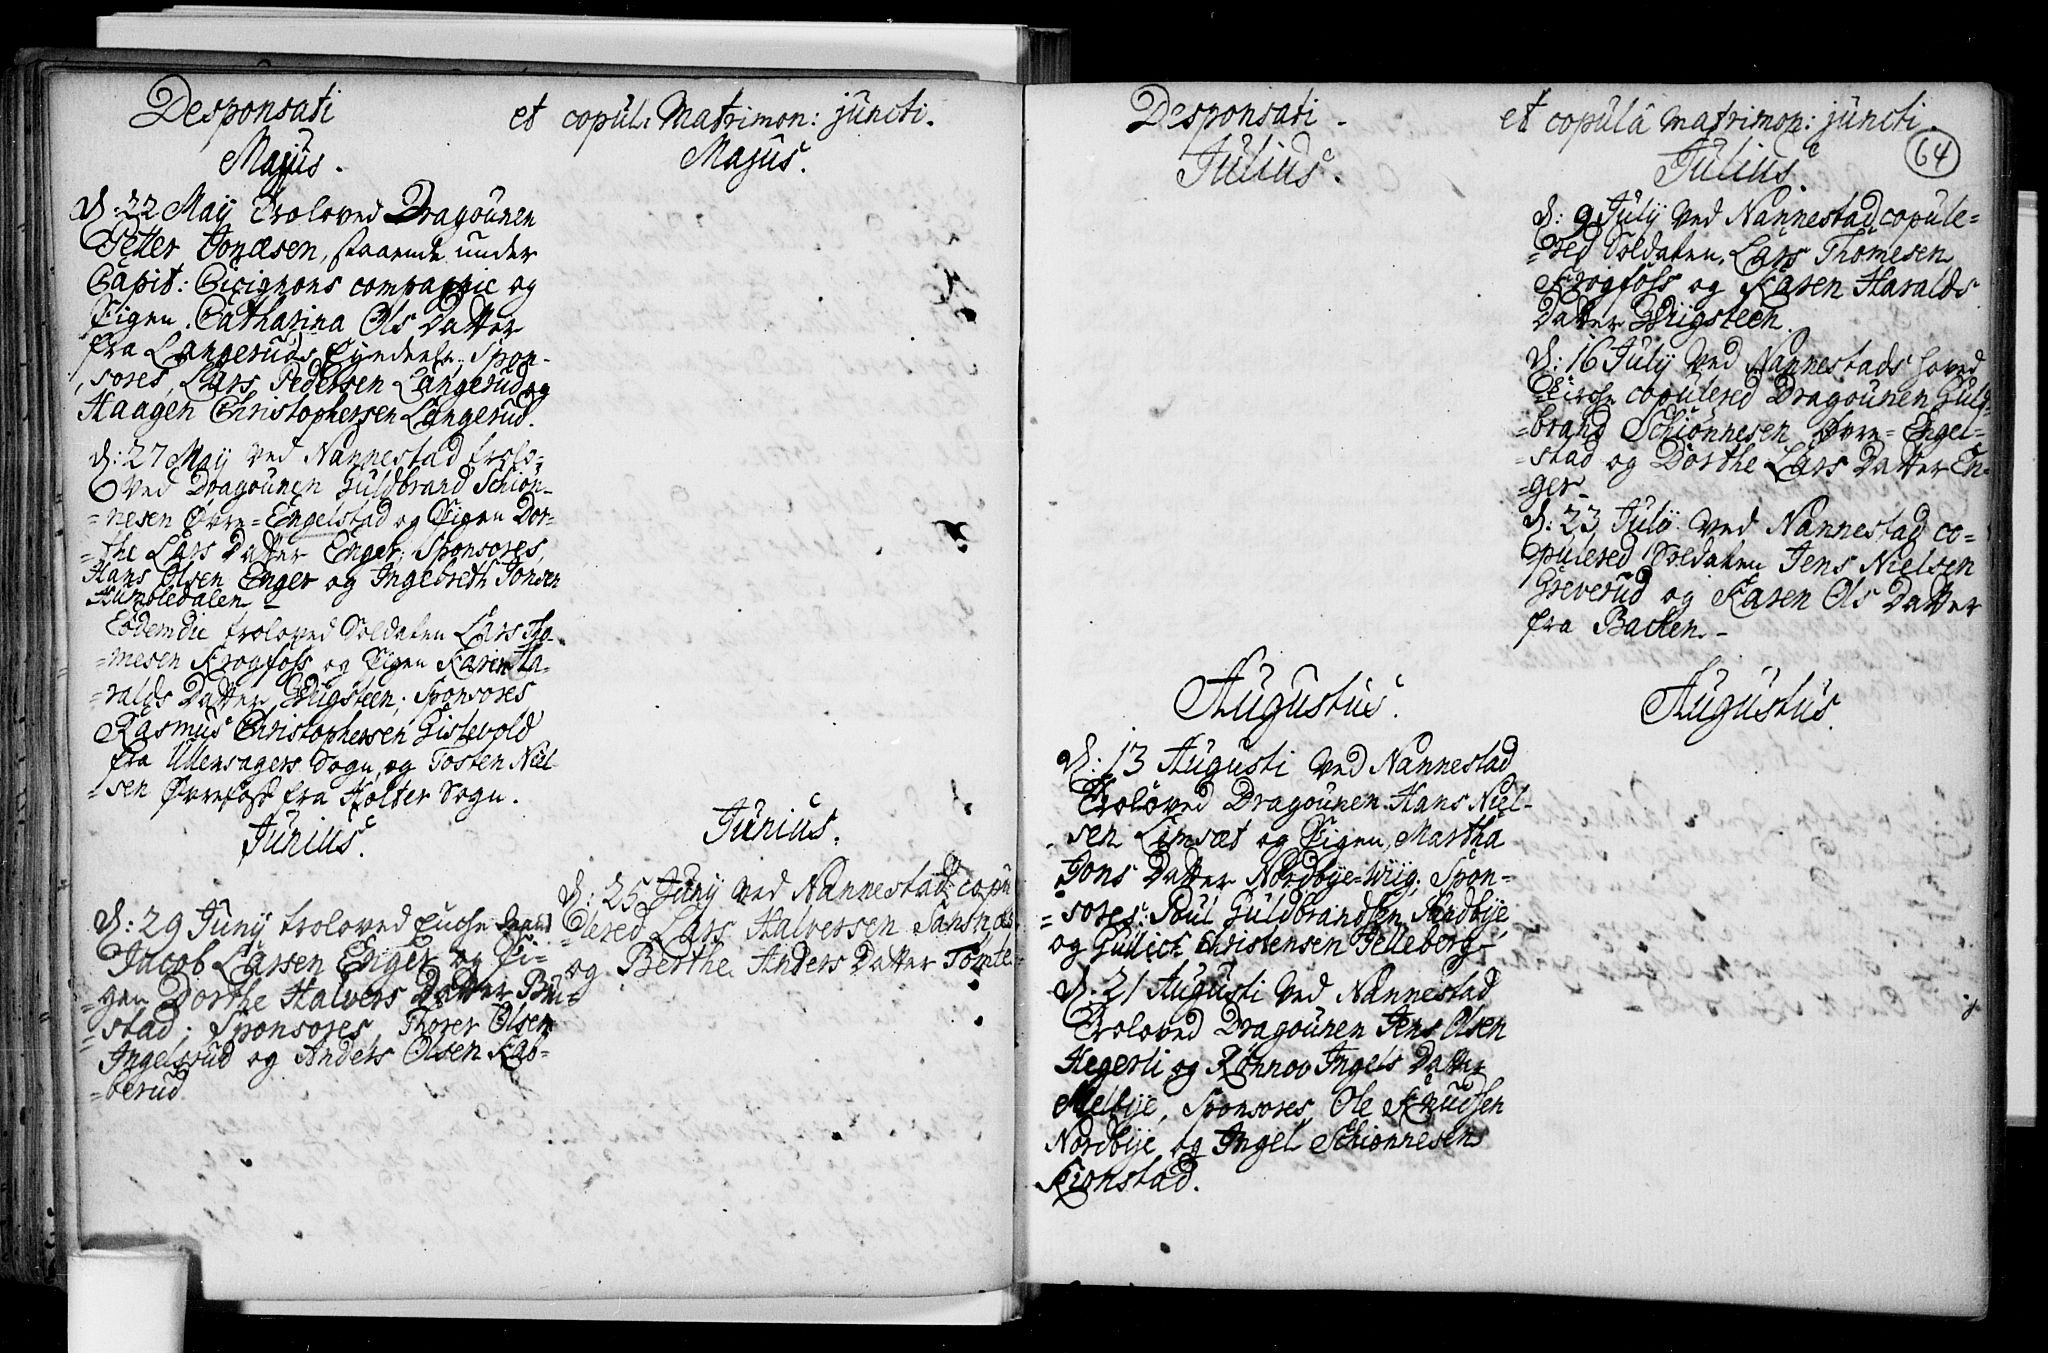 Desponsati
Majus.
D: 22 Maÿ Troloved Dragounen
Petter Jonæsen, staaende under
Capit: Cicignons compagnie og
Pigen Catharina Ols Datter
fra Langeruds Eÿndeele, Spon-
sores, Lars Pedersen Langerud og
Haagen Christophersen Langerud.
D: 27 Maÿ ved Nannestad trolo-
ved Dragounen Guldbrand Schion-
=nesen Øvre=Engelstad og Pigen Dor-
=the Lars Datter Enger; Sponsores,
Hans Olsen Enger og Ingebreth Jonsen
Humbledalen -
Eodem die troloved Soldaten Lars Tho-
=mesen Krogfoss og Pigen Karen Ha-
=ralds Datter Wrigsteen; Sponsores
Rasmus Christophersen Gistevold
fra Ullensagers Sogn, og Tosten Niel
=sen Øvrefoss fra Holter Sogn.
Junius.
D: 29 Junÿ troloved
Jacob Larsen Enger og Pi-
=gen Dorthe Halvers Datter Bru-
=stad; Sponsores, Thorer Olsen
Ingelsrud og Anders Olsen Kab-
=berud.
et copul. Matrimon: juncti.
Majus.
Junius.
D: 25 Junÿ ved Nannestad copu
=lered Lars Halversen
og Berthe Anders Datter Tomte
Desponsati -
Julius.
Augustus.
D: 13 Augusti ved Nannestad
Troloved Dragounen Hans Niel-
sen Limsæt og Pigen, Martha
Jons Datter Nordbye=Wiig; Spon-
=sores: Poul Guldbrandsen Nordbÿe,
og Gullick Christensen Jelleberg -
D. 21 Augusti ved Nannestad
Troloved Dragounen Jens Olsen
Hegerli og Rønnov Ingels Datter
Melbÿe, Sponsores, Ole Knudsen
Nordbÿe og Ingel Schionnesen
Kionstad.
et copulâ matrimon: juncti.
64
Julius.
D: 9 Julÿ ved Nannestad copule-
=red Soldaten, Lars Thomesen
Krogfoss og Karen Haralds
Datter Wrigsteen.
D: 16 Julÿ ved Nannestads hoved
Kirche copulered Dragounen Guld-
=brand Schionnesen Øvre=Engel-
=stad og Dorthe Lars Datter En-
=ger -
D: 23 Julÿ ved Nannestad co-
pulered Soldaten Jens Nielsen
Greverud og Karen Ols Datter
fra Backen. -
Augustus.